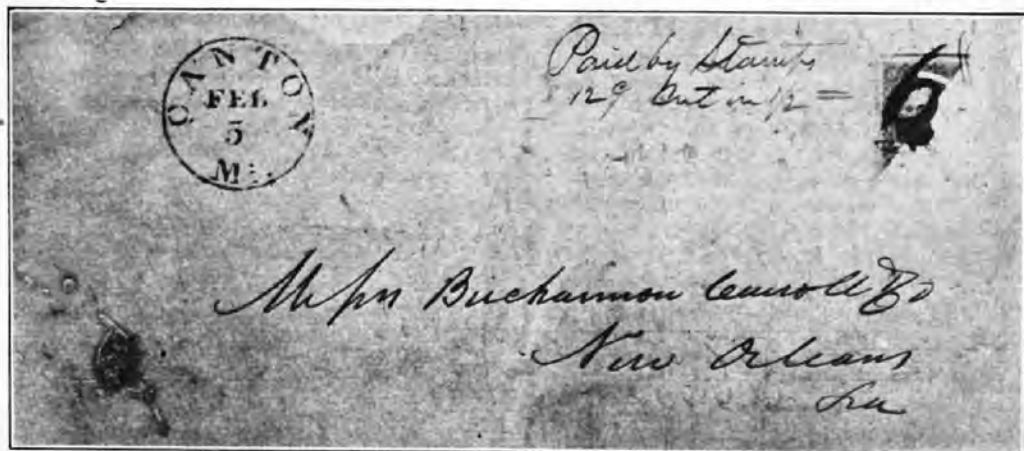 CANTON
FEB
5
Mi.
Paid by Stamps
12c Cut in 1/2 =
6
Messrs Buchannon Carroll & Co
New Orleans
La